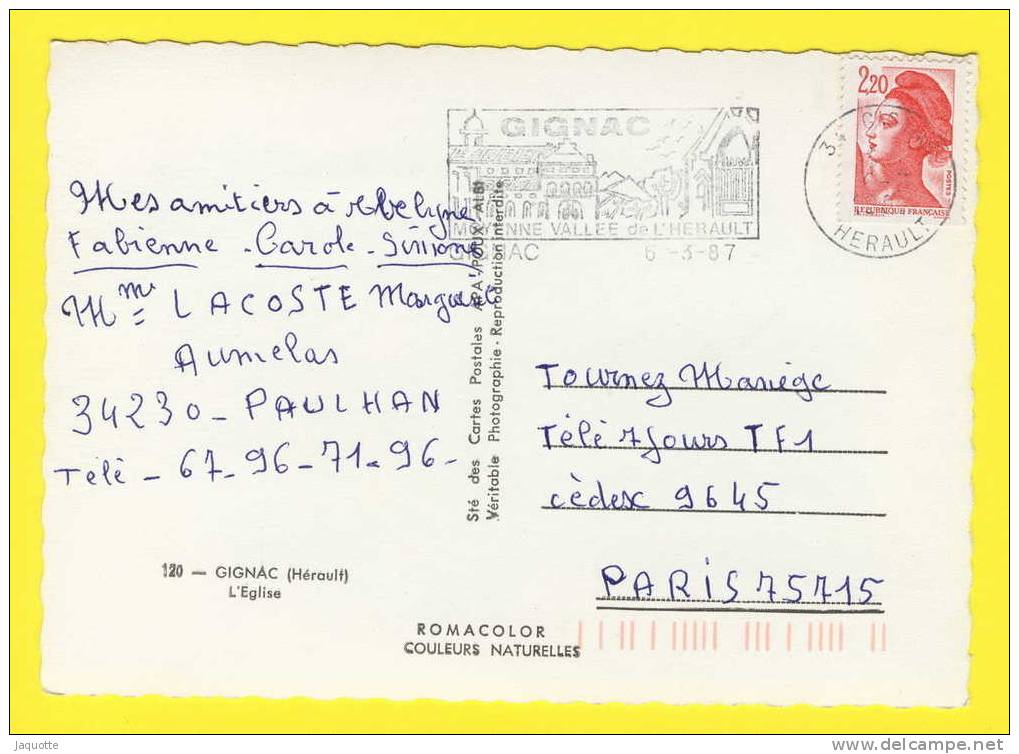 2,20
POSTES
REPUBLIQUE FRANÇAISE
34
HERAULT
GIGNAC
MOYENNE VALLEE de L'HERAULT
GIGNAC 6-3-87
Mes amitiers à
Fabienne - Carole - Simone
Mme LACOSTE
Aumelas
34230 - PAULHAN
Télé - 67-96-71-96-
Sté des Cartes Postales APA-POUX - ALBI
Véritable Photographie - Reproduction interdite
Tournez Manège
Télé 7 Jours TF1
cèdex 9645
PARIS 75715
120 — GIGNAC (Hérault)
L'Eglise
ROMACOLOR
COULEURS NATURELLES
Jaquotte
www.delcampe.net